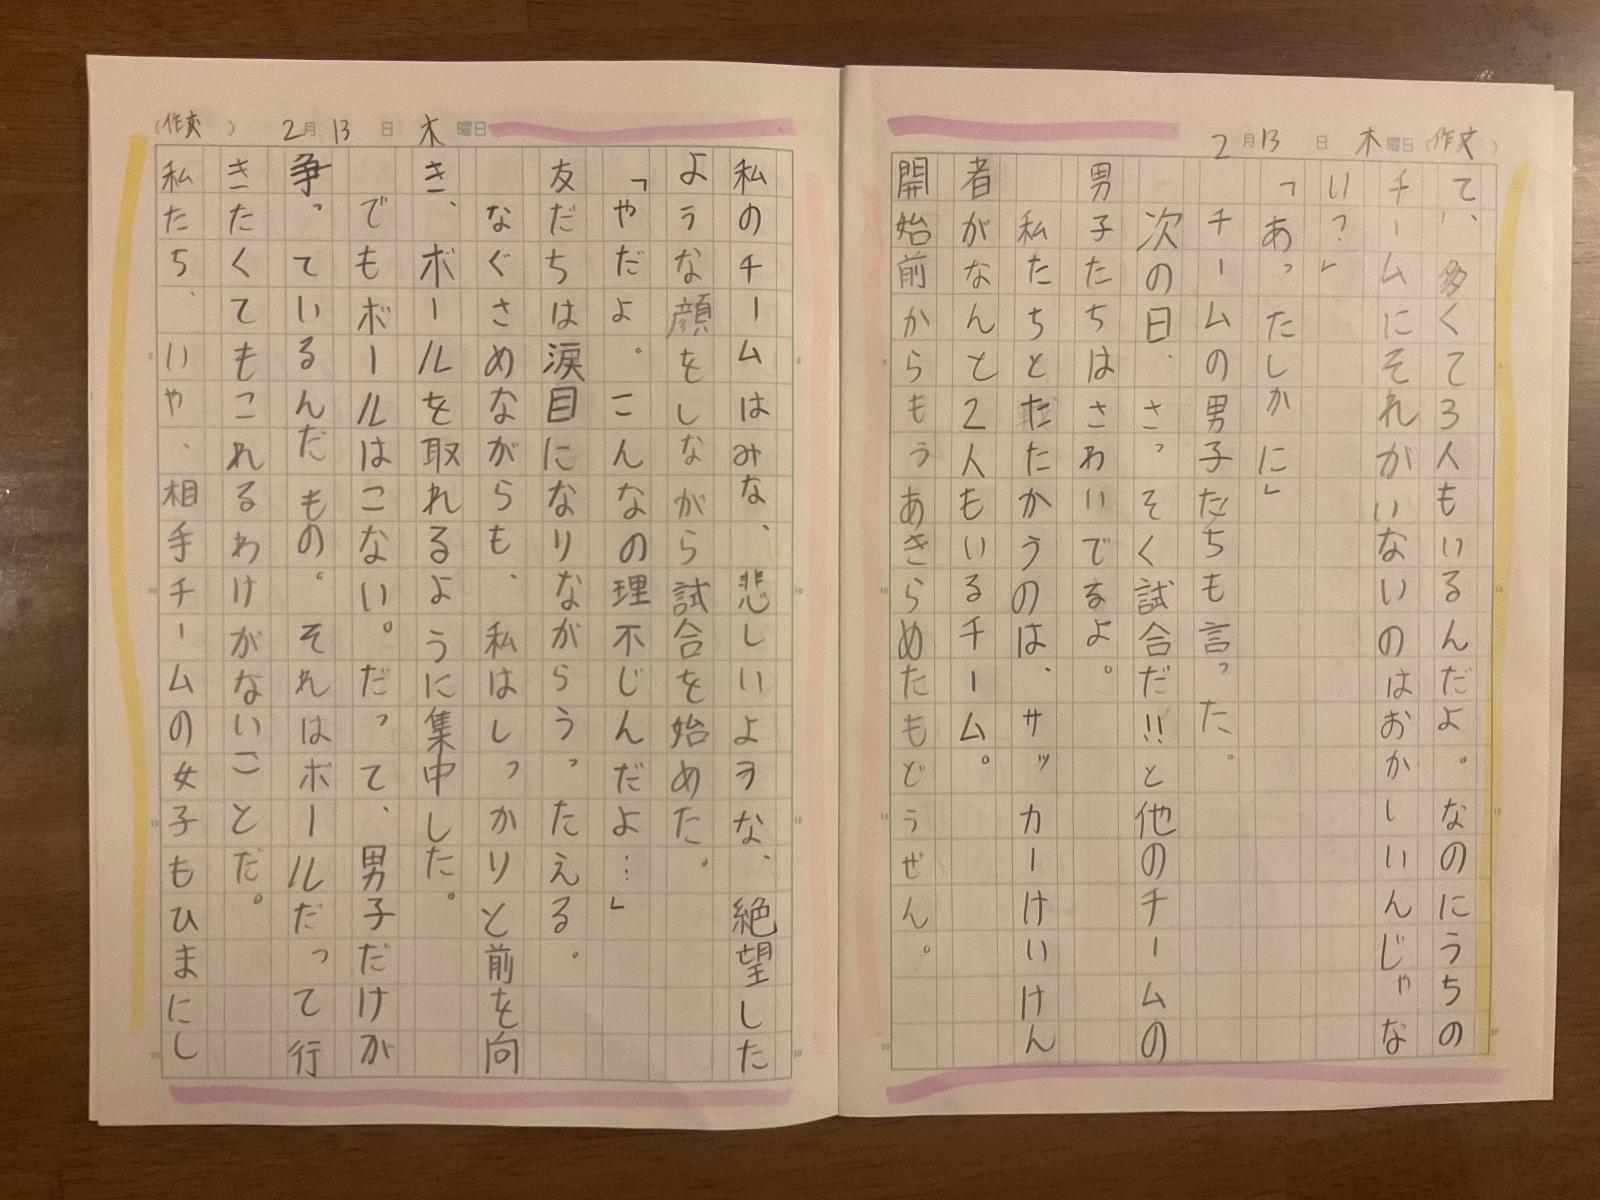 2月13日木曜日(作文)
て、多くて3人もいるんだよ。なのにうちの
チームにそれがいないのはおかしいんじゃな
い?」
「あっ、たしかに」
チームの男子たちも言った。
次の日、さっそく試合だ!!と他のチームの
男子たちはさわいでるよ。
私たちとたたかうのは、サッカーけいけん
者がなんと2人もいるチーム。
開始前からもうあきらめたもどうぜん。
(作文)2月13日木曜日
私のチームはみな、悲しいような、絶望した
ような顔をしながら試合を始めた。
「やだよ。こんなの理不じんだよ…」
友だちは涙目になりながらうったえる。
なぐさめながらも、私はしっかりと前を向
き、ボールを取れるように集中した。
でもボールはこない。だって、男子だけが
争っているんだもの。それはボールだって行
きたくてもこれるわけがないことだ。
私たち、いや、相手チームの女子もひまにし